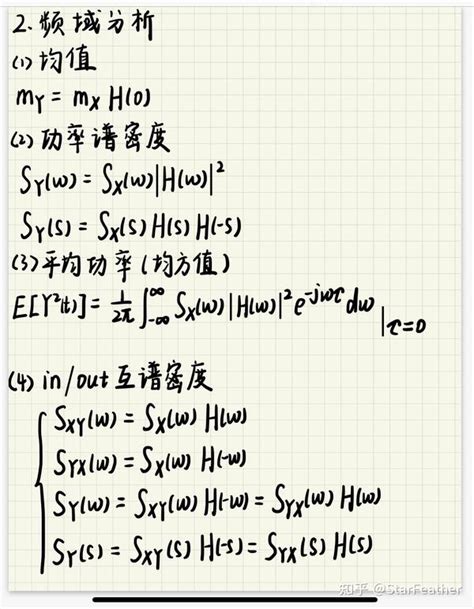 2.频域分析
(1)均值
m_Y = m_X H(0)
(2)功率谱密度
S_Y(ω) = S_X(ω)|H(ω)|²
S_Y(s) = S_X(s) H(s) H(-s)
(3)平均功率(均方值)
E[Y²(t)] = 1/2π ∫_{-∞}^{∞} S_X(ω)|H(ω)|² e^{-jωτ} dω |_{τ=0}
(4) in/out 互谱密度
S_XY(ω) = S_X(ω) H(ω)
S_YX(ω) = S_X(ω) H(-ω)
S_Y(ω) = S_XY(ω) H(-ω) = S_YX(ω) H(ω)
S_Y(s) = S_XY(s) H(-s) = S_YX(s) H(s)
知乎 @StarFeather